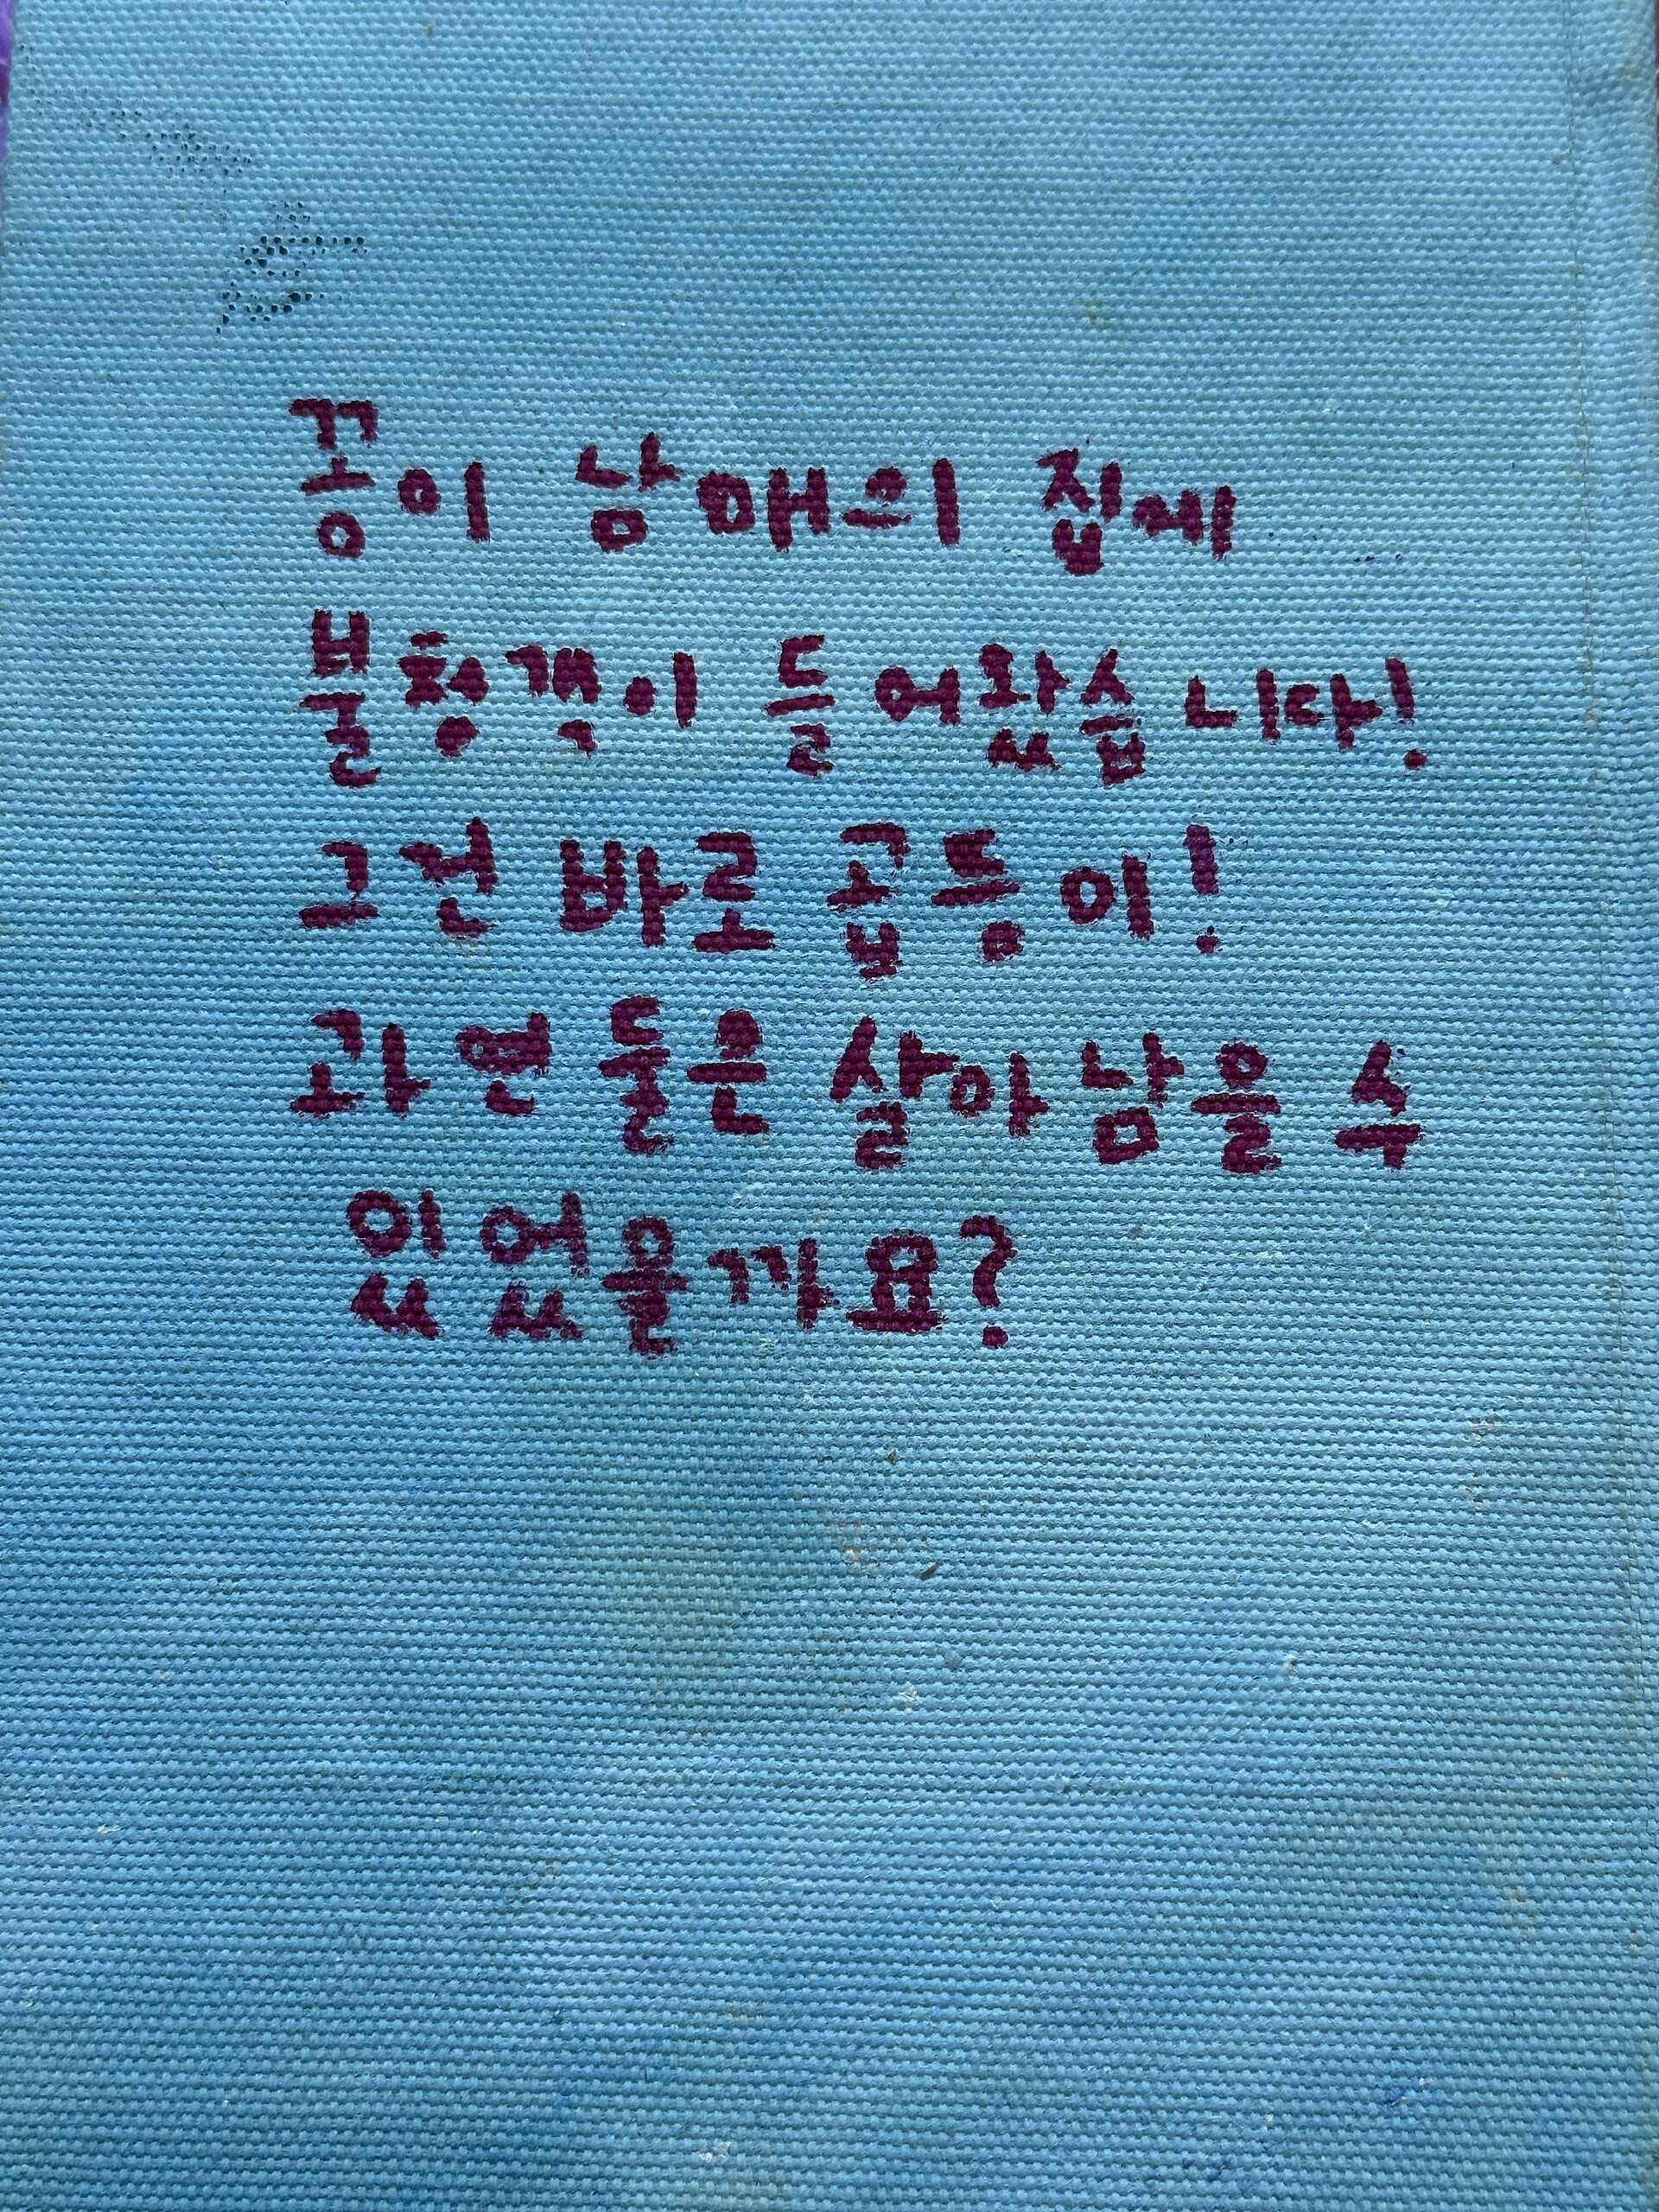 꽁이 남매의 집에
불청객이 들어왔습니다!
그건 바로 곱등이!
과연 둘은 살아남을 수
있었을까요?